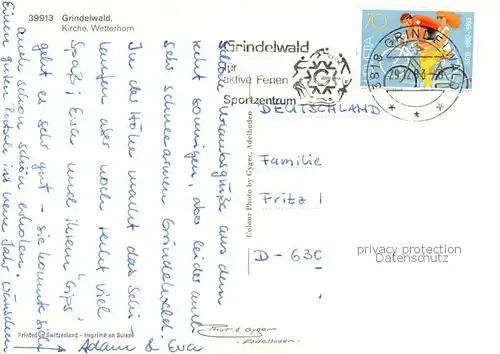 39913 Grindelwald,
Kirche, Wetterhorn
Schöne Urlaubsgrüße aus dem
recht sonnigen, aber leider auch
sehr schneearmen Grindelwald.
In der Höhe macht das Schi-
laufen aber noch recht viel
Spaß; Eva und ihrem "Gips"
geht es sehr gut - sie konnte sich
auch schon schön erholen.
Einen guten Rutsch ins neue Jahr wünschen
→ Adam & Eva
Grindelwald
für
aktive Ferien
Sportzentrum
HELVETIA 70
3818 GRINDELWALD
DEUTSCHLAND
Familie
Fritz
D-630
privacy protection
Datenschutz
Colour Photo by Gyger, Adelboden
Printed in Switzerland - Imprimé en Suisse
Gyger
Adelboden